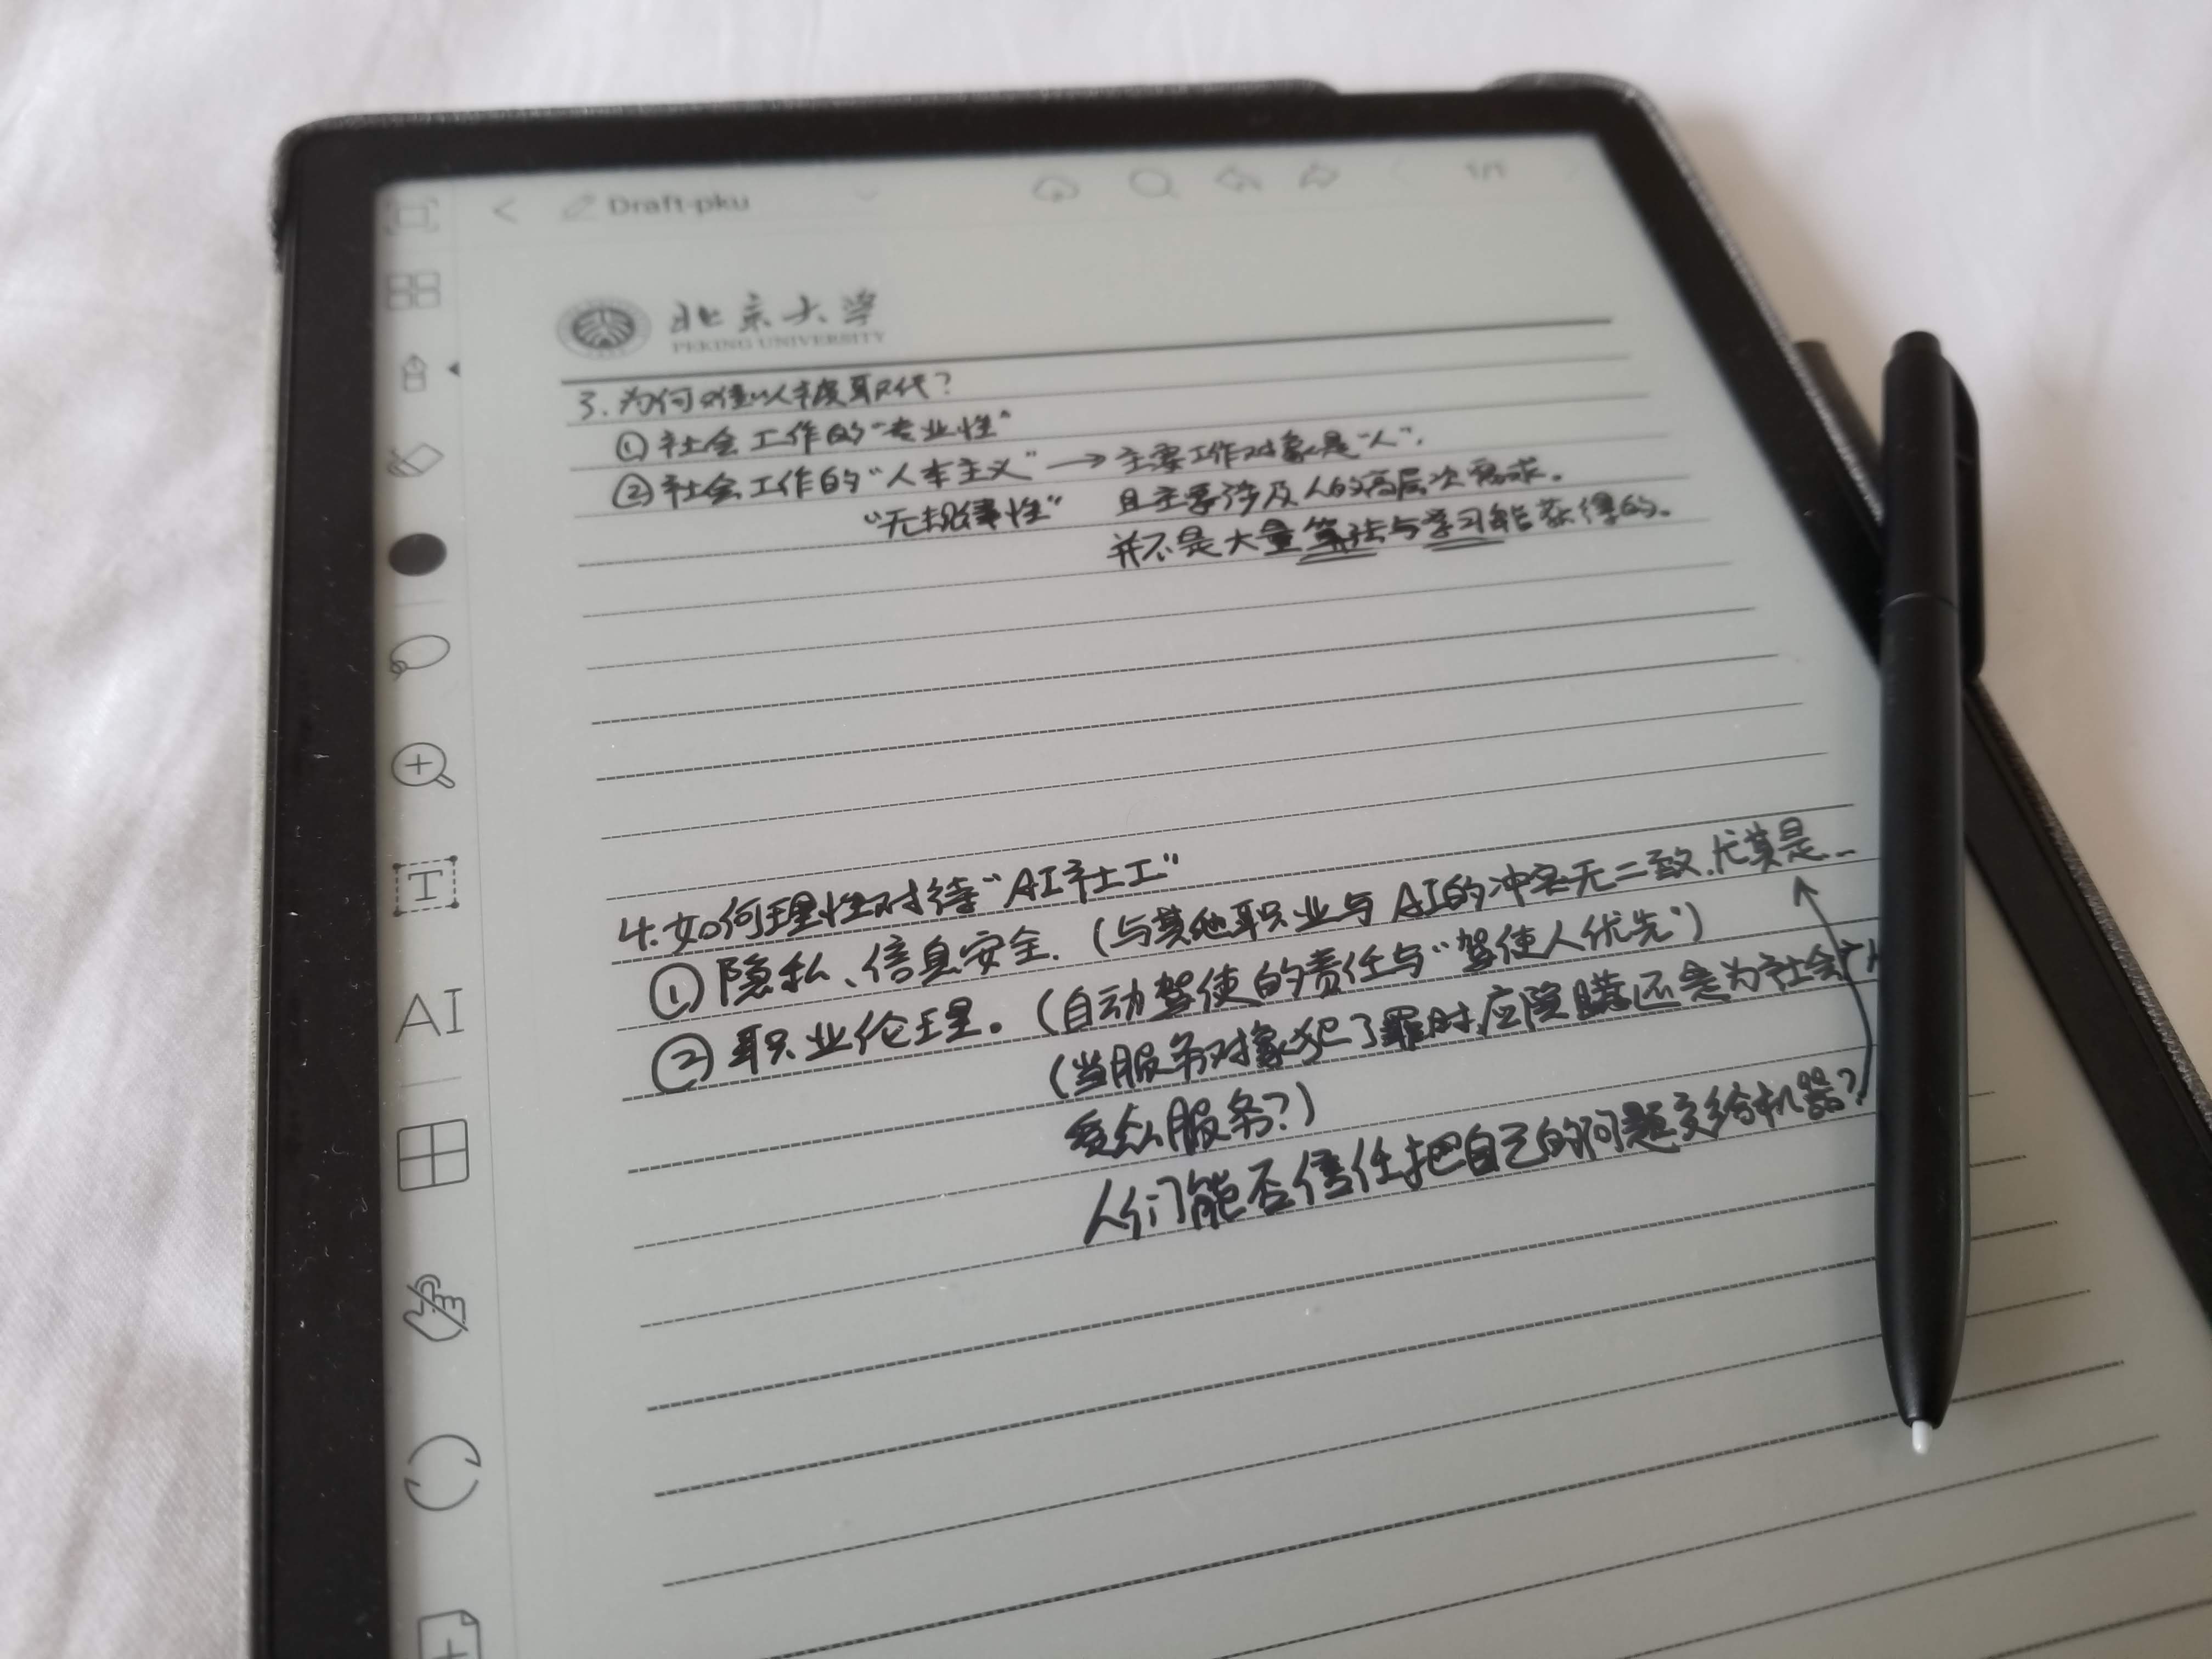 Draft-pku
1/1
北京大学
PEKING UNIVERSITY
3. 为何难以被取代？
① 社会工作的“专业性”
② 社会工作的“人本主义” → 主要工作对象是“人”.
“无规律性” 且主要涉及人的高层次需求.
并不是大量算法与学习能获得的.
T
4. 如何理性对待“AI社工”
① 隐私、信息安全. (与其他职业与AI的冲突无二致. 尤其是...
② 职业伦理。 (自动驾使的责任与“驾使人优先”)
AI
(当服务对象犯了罪时, 应隐瞒还是为社会
服务?)
人们能否信任把自己的问题交给机器?